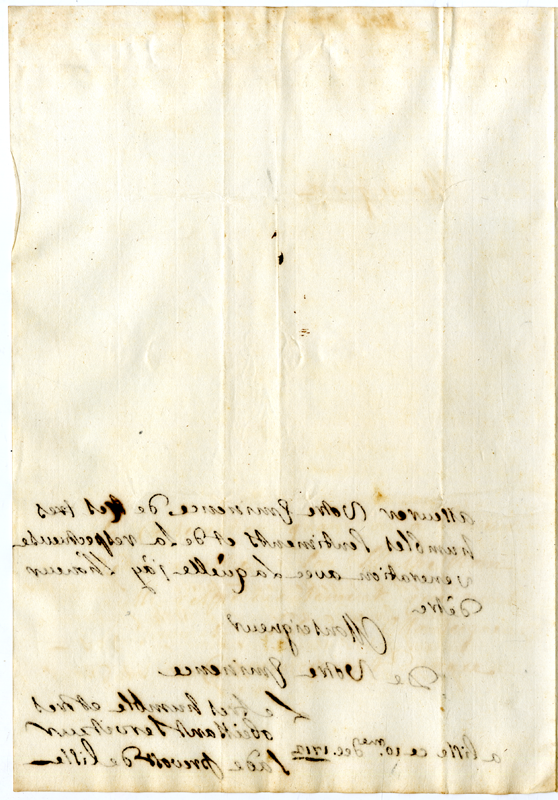 asseurer Votre Eminence de ses tres
humbles sentiments et de la respectueuse
veneration avec laquelle j'ay l'honeur
d'etre
Monseigneur
De Votre Eminence
Le tres humble et tres
obeissant serviteur
prevost de lille
a lille ce 10 dec. 1712